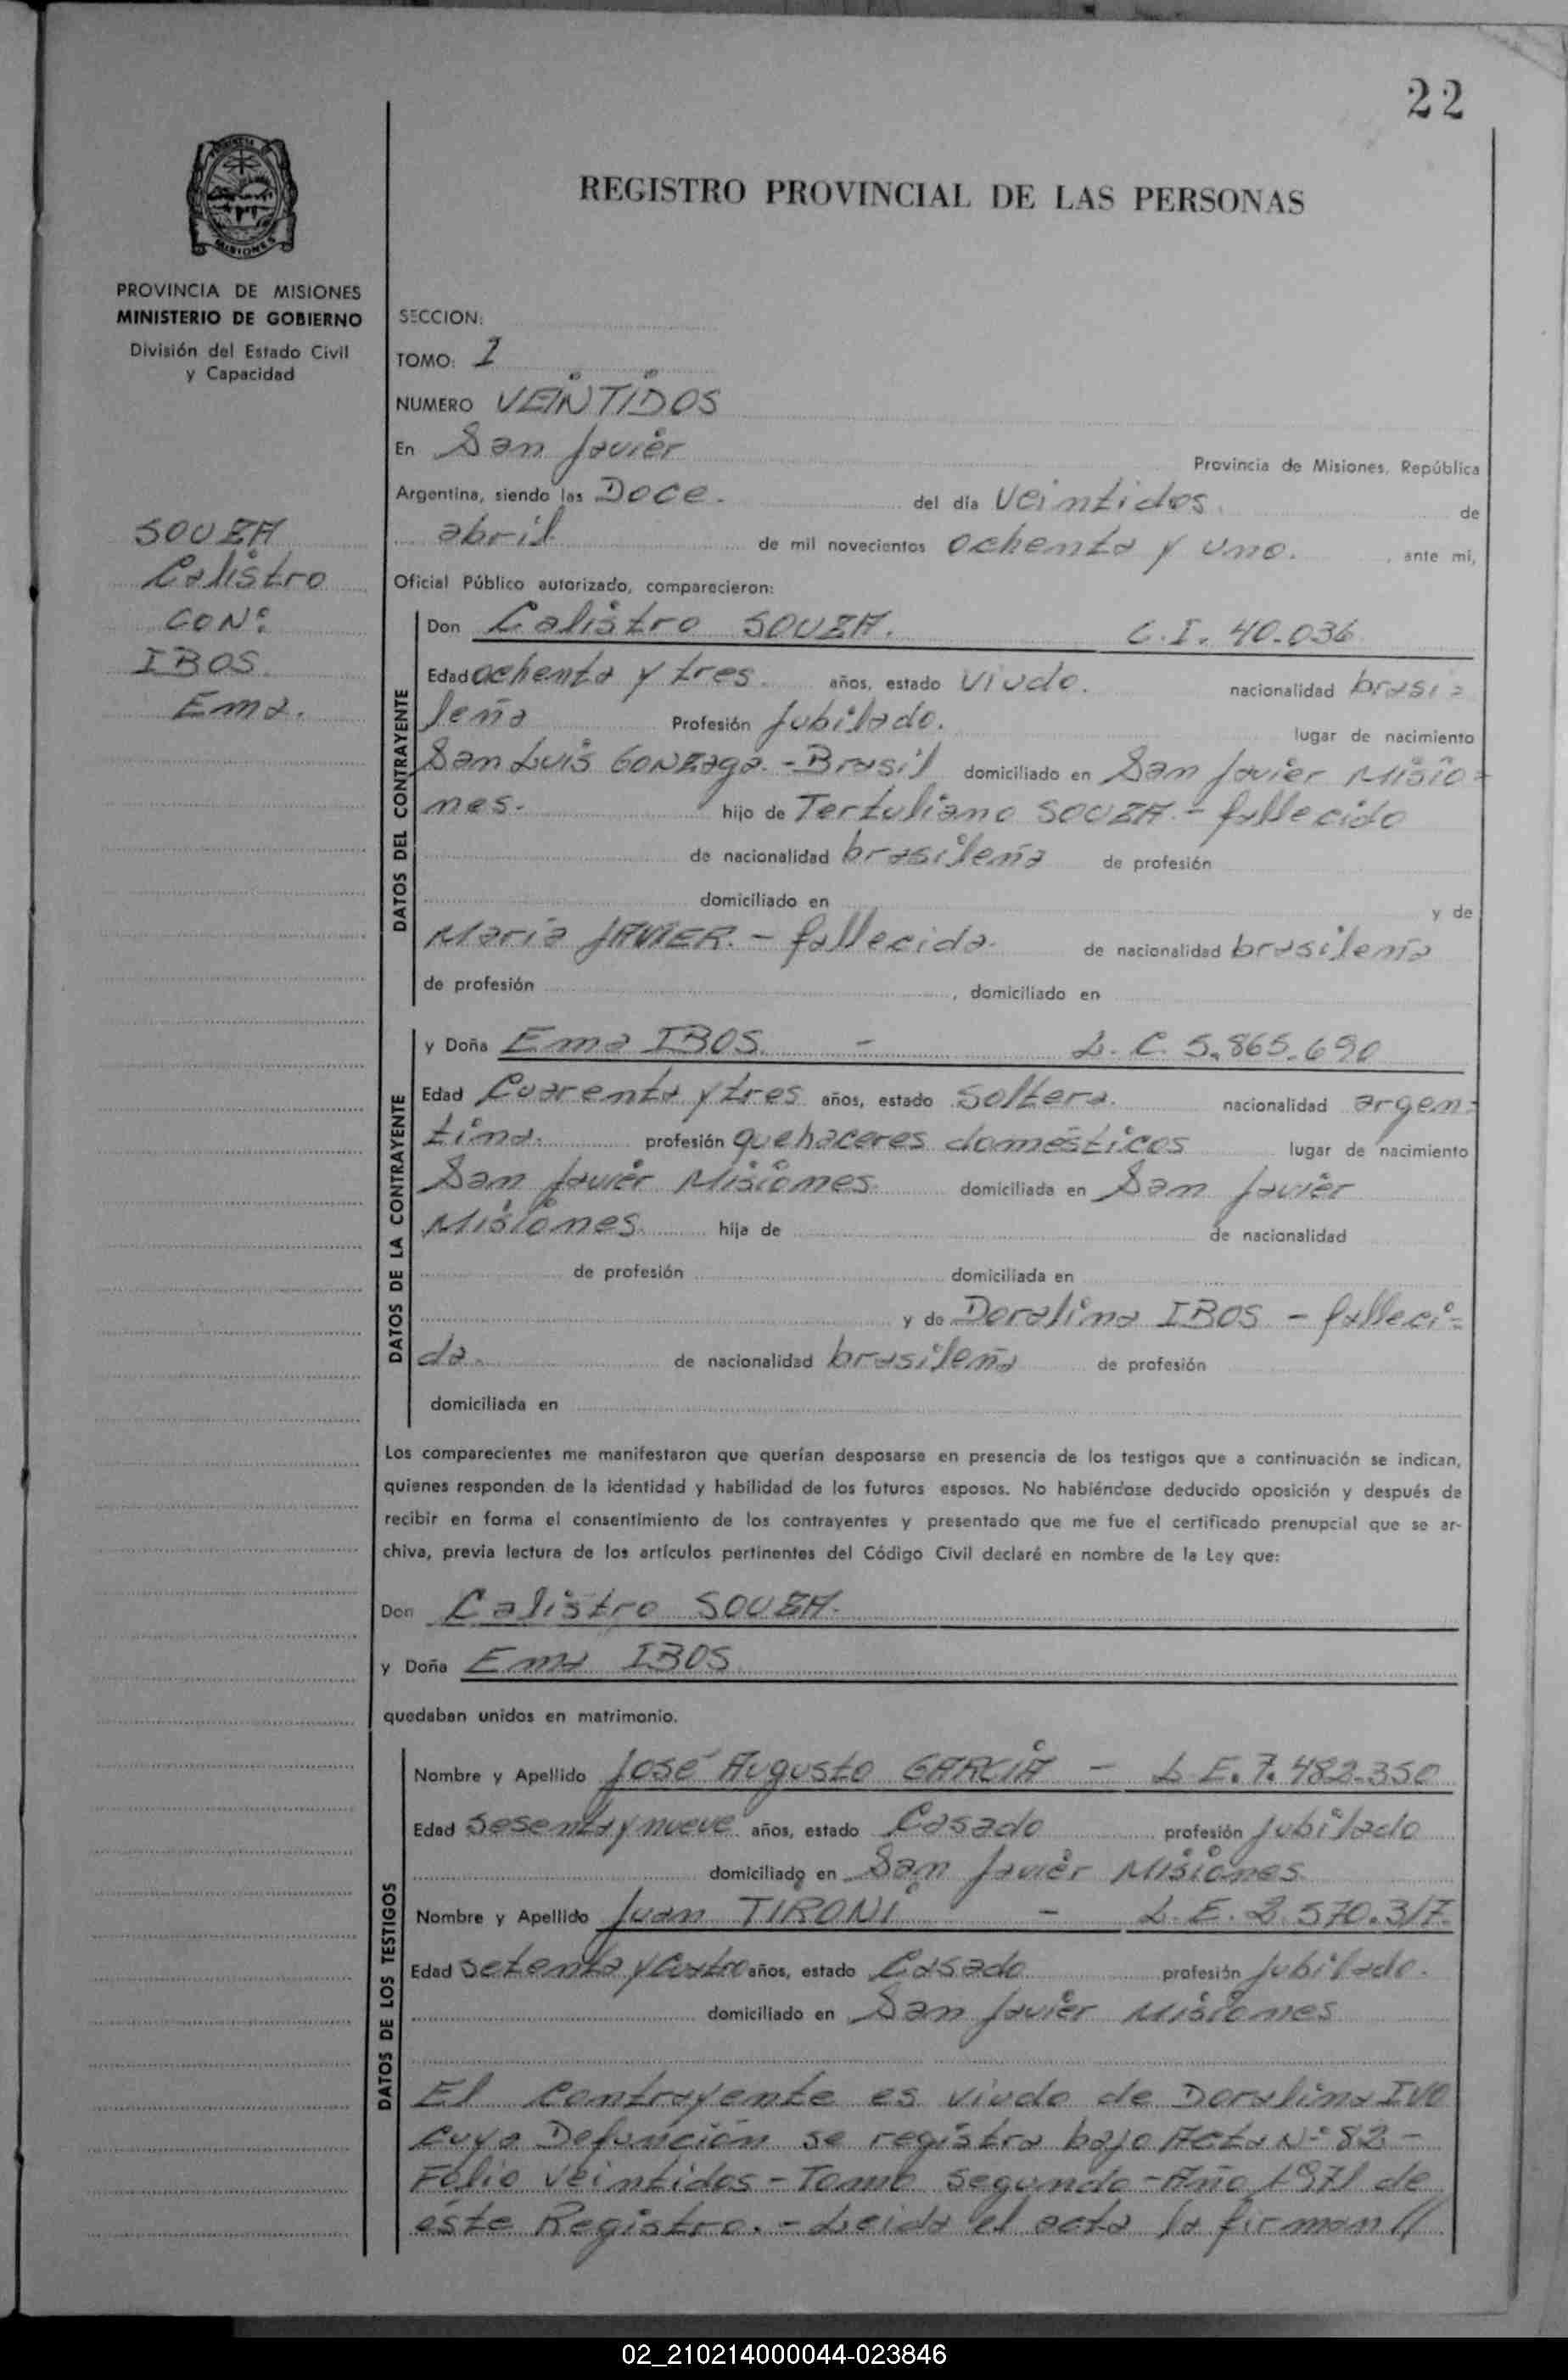 22
PROVINCIA DE MISIONES
MINISTERIO DE GOBIERNO
División del Estado Civil
y Capacidad
SOUZA
Calistro
CON:
IBOS
Ema.
REGISTRO PROVINCIAL DE LAS PERSONAS
SECCION:
TOMO: I
NUMERO VEINTIDOS
En San Javier Provincia de Misiones, República
Argentina, siendo las Doce. del día veintidos de
abril de mil novecientos ochenta y uno. , ante mi,
Oficial Público autorizado, comparecieron:
DATOS DEL CONTRAYENTE
Don Calistro SOUZA. C.I. 40.036
Edad ochenta y tres. años, estado viudo. nacionalidad brasi=
leña Profesión Jubilado. lugar de nacimiento
San Luis GONZaga. - Brasil domiciliado en San Javier Misio=
nes. hijo de Tertuliano SOUZA - fallecido
de nacionalidad brasileña de profesión
domiciliado en y de
María JAVIER. - fallecida. de nacionalidad brasileña
de profesión , domiciliado en
DATOS DE LA CONTRAYENTE
y Doña Ema IBOS. - L.C. 5.865.690
Edad Cuarenta y tres años, estado soltera. nacionalidad argen=
tina. profesión quehaceres domésticos lugar de nacimiento
San Javier Misiones domiciliada en San Javier
Misiones. hija de de nacionalidad
de profesión domiciliada en
y de Doralina IBOS - falleci=
da. de nacionalidad brasileña de profesión
domiciliada en
Los comparecientes me manifestaron que querían desposarse en presencia de los testigos que a continuación se indican,
quienes responden de la identidad y habilidad de los futuros esposos. No habiéndose deducido oposición y después de
recibir en forma el consentimiento de los contrayentes y presentado que me fue el certificado prenupcial que se ar-
chiva, previa lectura de los artículos pertinentes del Código Civil declaré en nombre de la Ley que:
Don Calistro SOUZA.
y Doña Ema IBOS
quedaban unidos en matrimonio.
DATOS DE LOS TESTIGOS
Nombre y Apellido José Augusto GARCIA - L.E. 7.482.350
Edad sesenta y nueve años, estado Casado profesión Jubilado
domiciliado en San Javier Misiones
Nombre y Apellido Juan TIRONI - L.E. 2.570.317
Edad setenta y Cuatro años, estado Casado profesión Jubilado.
domiciliado en San Javier Misiones
El Contrayente es viudo de Doralina IVO
Cuya Defunción se registra bajo Acta Nº 82 -
Folio veintidos - Tomo segundo - Año 1971 de
éste Registro. - Leida el acta la firman //
02_210214000044-023846